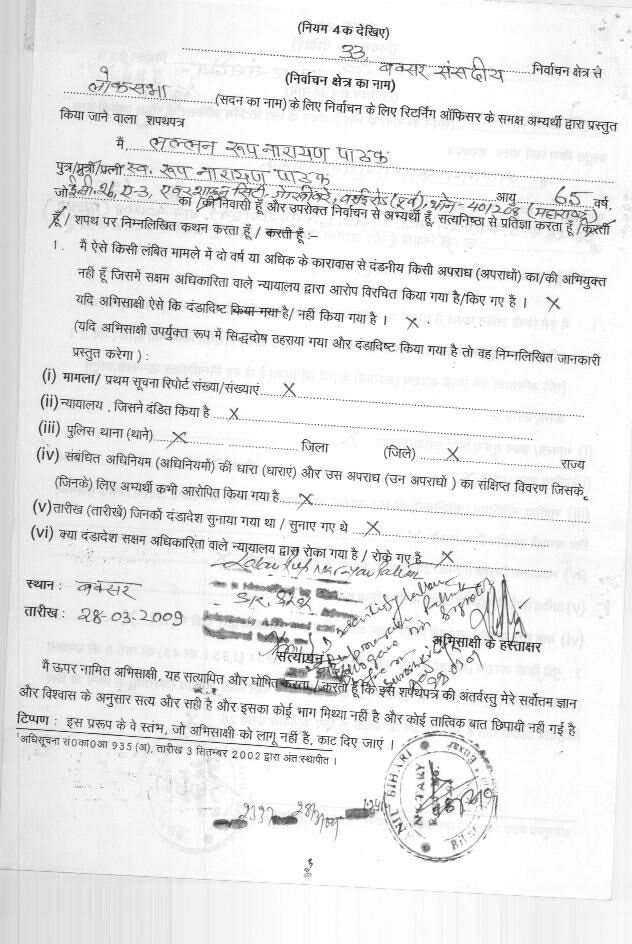 (नियम 4 क देखिए)
33, बक्सर संसदीय निर्वाचन क्षेत्र से
(निर्वाचन क्षेत्र का नाम)
लोकसभा (सदन का नाम) के लिए निर्वाचन के लिए रिटर्निंग ऑफिसर के समक्ष अभ्यर्थी द्वारा प्रस्तुत
किया जाने वाला शपथपत्र
मैं, लल्लन रूप नारायण पाठक
पुत्र/पुत्री/पत्नी स्व. रूप नारायण पाठक आयु 65 वर्ष,
जो ई.सी. 26, ए-3, एवरशाइन सिटी, वसई रोड (पूर्व), 401208 (महाराष्ट्र)
का /की निवासी हूँ और उपरोक्त निर्वाचन से अभ्यर्थी हूँ, सत्यनिष्ठा से प्रतिज्ञा करता हूँ /करती
हूँ / शपथ पर निम्नलिखित कथन करता हूँ / करती हूँ :–
1. मैं ऐसे किसी लंबित मामले में दो वर्ष या अधिक के कारावास से दंडनीय किसी अपराध (अपराधों) का/की अभियुक्त
नहीं हूँ जिसमें सक्षम अधिकारिता वाले न्यायालय द्वारा आरोप विरचित किया गया है/किए गए हैं । X
यदि अभिसाक्षी ऐसे कि दंडादिष्ट किया गया है/ नहीं किया गया है । X
(यदि अभिसाक्षी उपर्युक्त रूप में सिद्धदोष ठहराया गया और दंडादिष्ट किया गया है तो वह निम्नलिखित जानकारी
प्रस्तुत करेगा ) :
(i) मामला/ प्रथम सूचना रिपोर्ट संख्या/संख्याएं X
(ii) न्यायालय , जिसने दंडित किया है X
(iii) पुलिस थाना (थाने) X जिला (जिले) X राज्य
(iv) संबंधित अधिनियम (अधिनियमों) की धारा (धाराएं) और उस अपराध (उन अपराधों ) का संक्षिप्त विवरण जिसके
(जिनके) लिए अभ्यर्थी कभी आरोपित किया गया है X
(v) तारीख (तारीखें) जिनको दंडादेश सुनाया गया था / सुनाए गए थे X
(vi) क्या दंडादेश सक्षम अधिकारिता वाले न्यायालय द्वारा रोका गया है / रोके गए हैं X
स्थान : बक्सर
तारीख : 28-03-2009
अभिसाक्षी के हस्ताक्षर
सत्यापन
मैं ऊपर नामित अभिसाक्षी, यह सत्यापित और घोषित करता / करती हूँ कि इस शपथपत्र की अंतर्वस्तु मेरे सर्वोत्तम ज्ञान
और विश्वास के अनुसार सत्य और सही है और इसका कोई भाग मिथ्या नहीं है और कोई तात्विक बात छिपायी नहीं गई है
टिप्पण : इस प्ररूप के वे स्तंभ, जो अभिसाक्षी को लागू नहीं हैं, काट दिए जाएं ।
¹अधिसूचना सं0का0आ 935 (अ), तारीख 3 सितम्बर 2002 द्वारा अंतःस्थापित ।
ANIL BIHARI
NOTARY